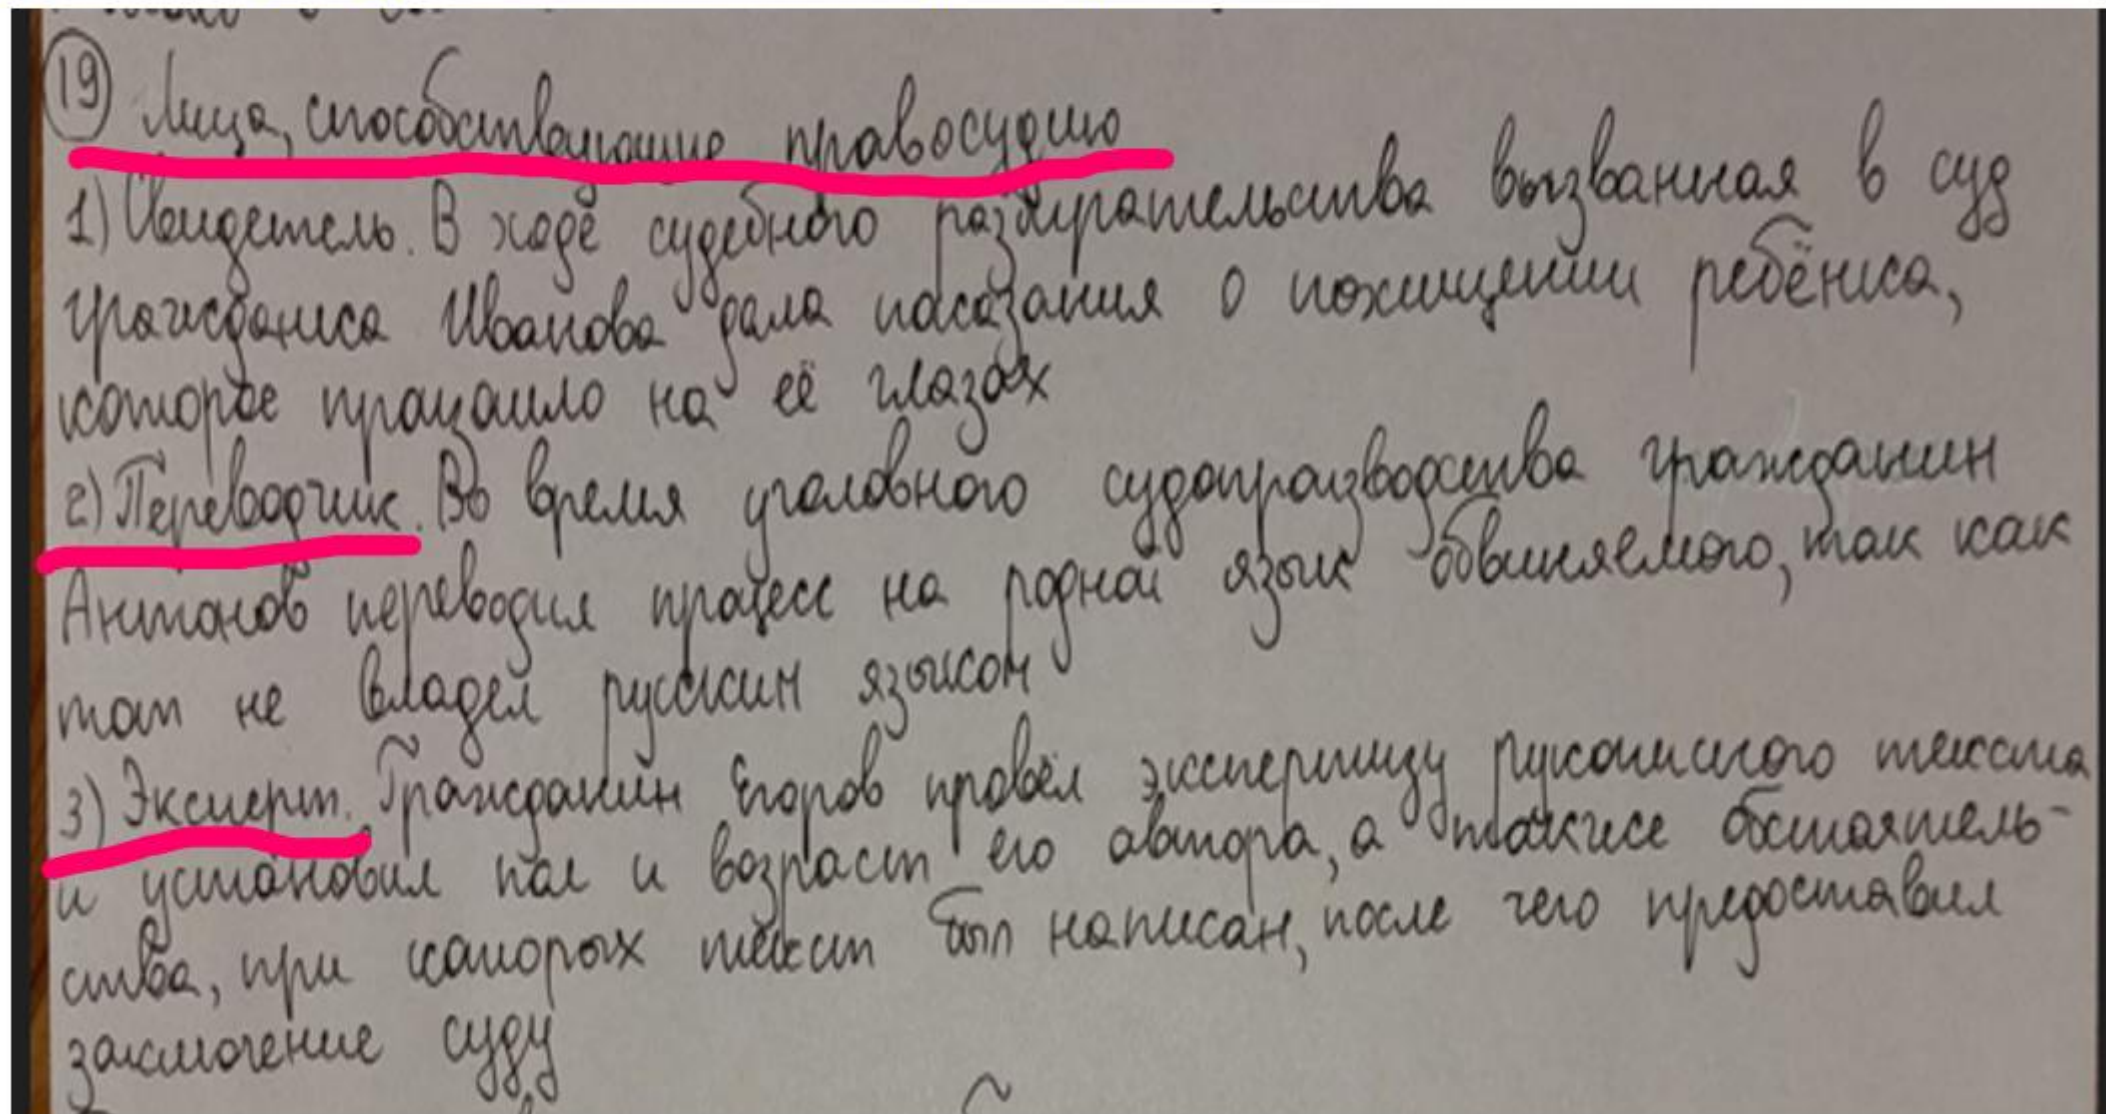 19 Лица, способствующие правосудию
1) Свидетель. В ходе судебного разбирательства вызванная в суд
гражданка Иванова дала показания о похищении ребёнка,
которое произошло на её глазах
2) Переводчик. Во время уголовного судопроизводства гражданин
Антонов переводил процесс на родной язык обвиняемого, так как
тот не владел русским языком
3) Эксперт. Гражданин Егоров провёл экспертизу рукописного текста
и установил пол и возраст его автора, а также обстоятель-
ства, при которых текст был написан, после чего предоставил
заключение суду